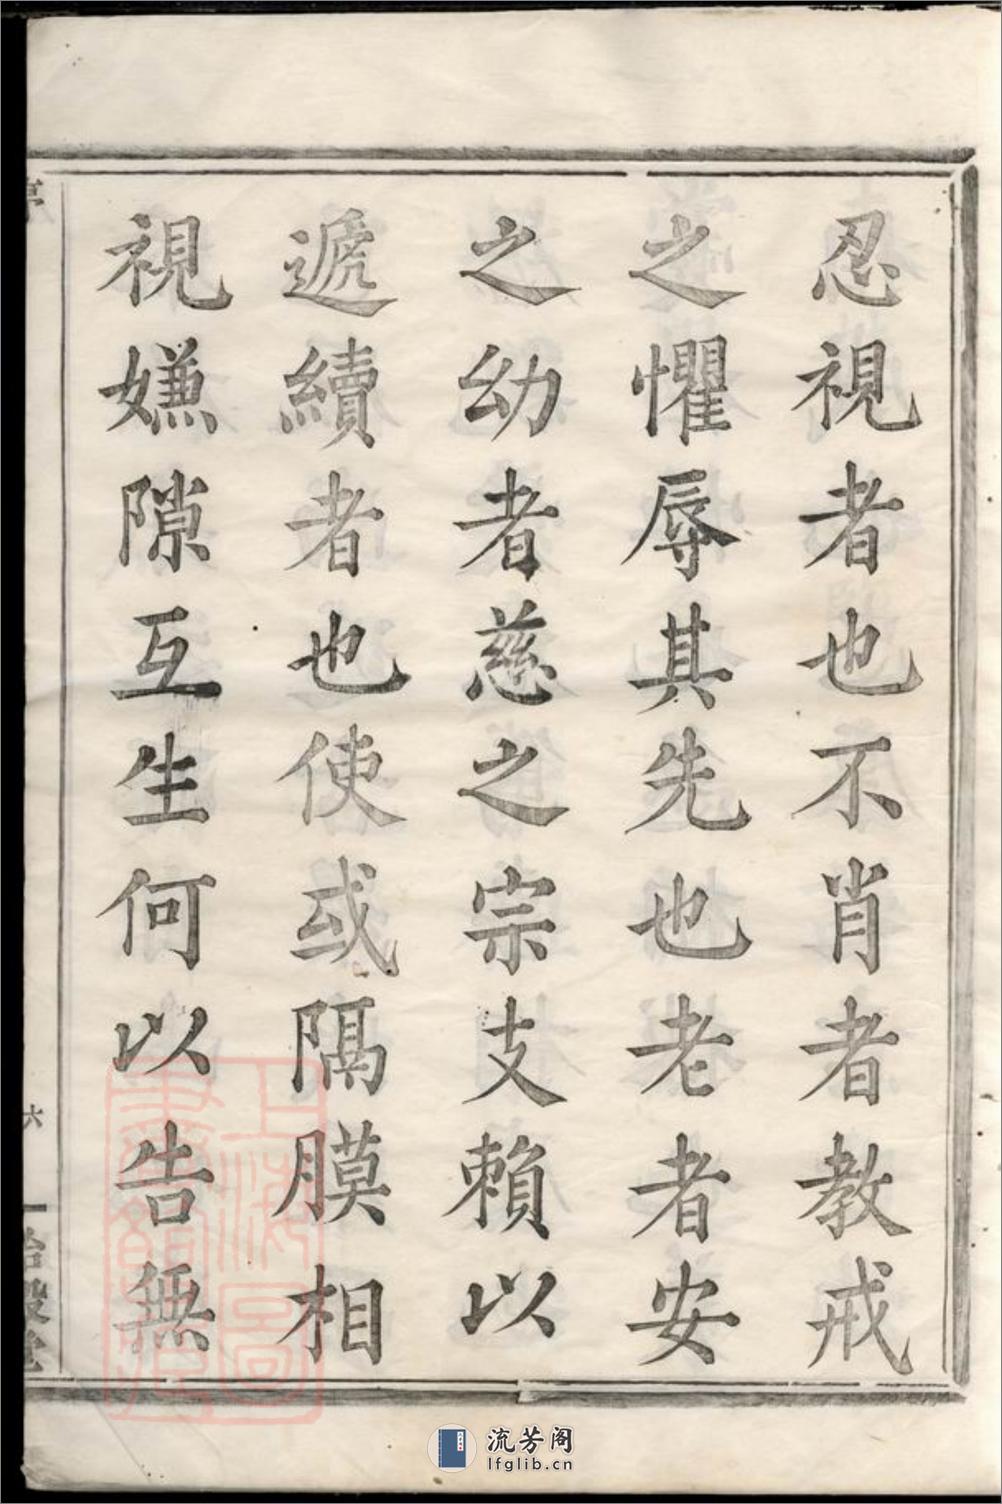 忍視者也不肖者教戒
之懼辱其先也老者安
之幼者慈之宗支賴以
遞續者也使或隔膜相
視嫌隙互生何以告無
六
流芳阁
lfglib.cn